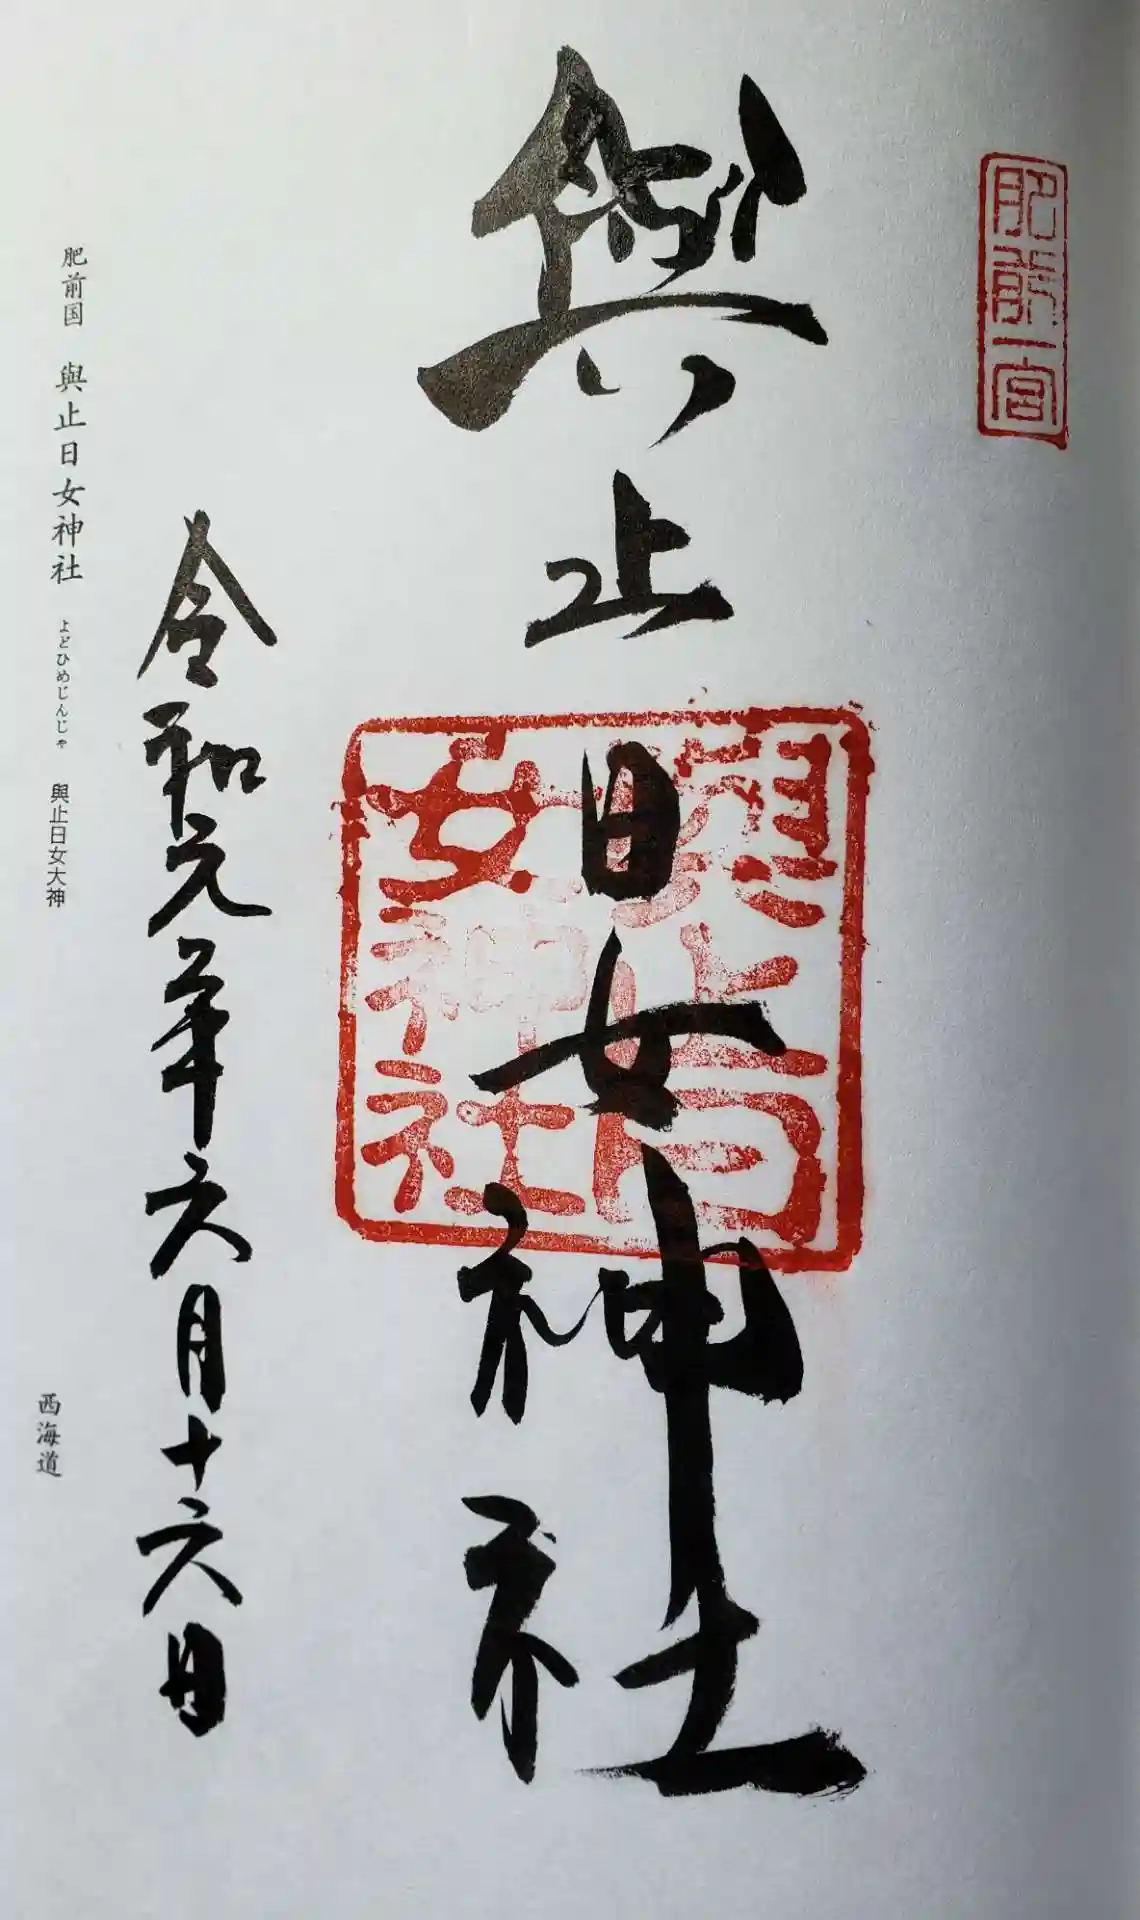 肥前一宮
與止日女神社
與止日女神社
令和元年六月十六日
肥前国 與止日女神社 よどひめじんじゃ 與止日女大神
西海道